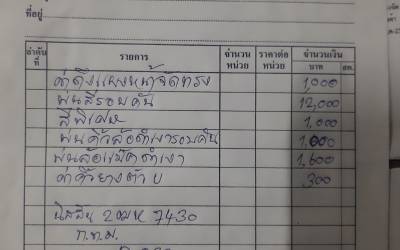 ที่อยู่
ลำดับที่ รายการ จำนวนหน่วย ราคาต่อหน่วย จำนวนเงิน บาท สต.
ค่าดึงแผงหน้าจัดทรง 1,000
พ่นสีรอบคัน 12,000
สีพิเศษ 1,000
พ่นคิ้วล้อดำเงารอบคัน 1,000
พ่นล้อแม็คดำเงา 1,600
ค่าคิ้วยางตัว U 300
2ขฆ 7430
ก.ท.ม.